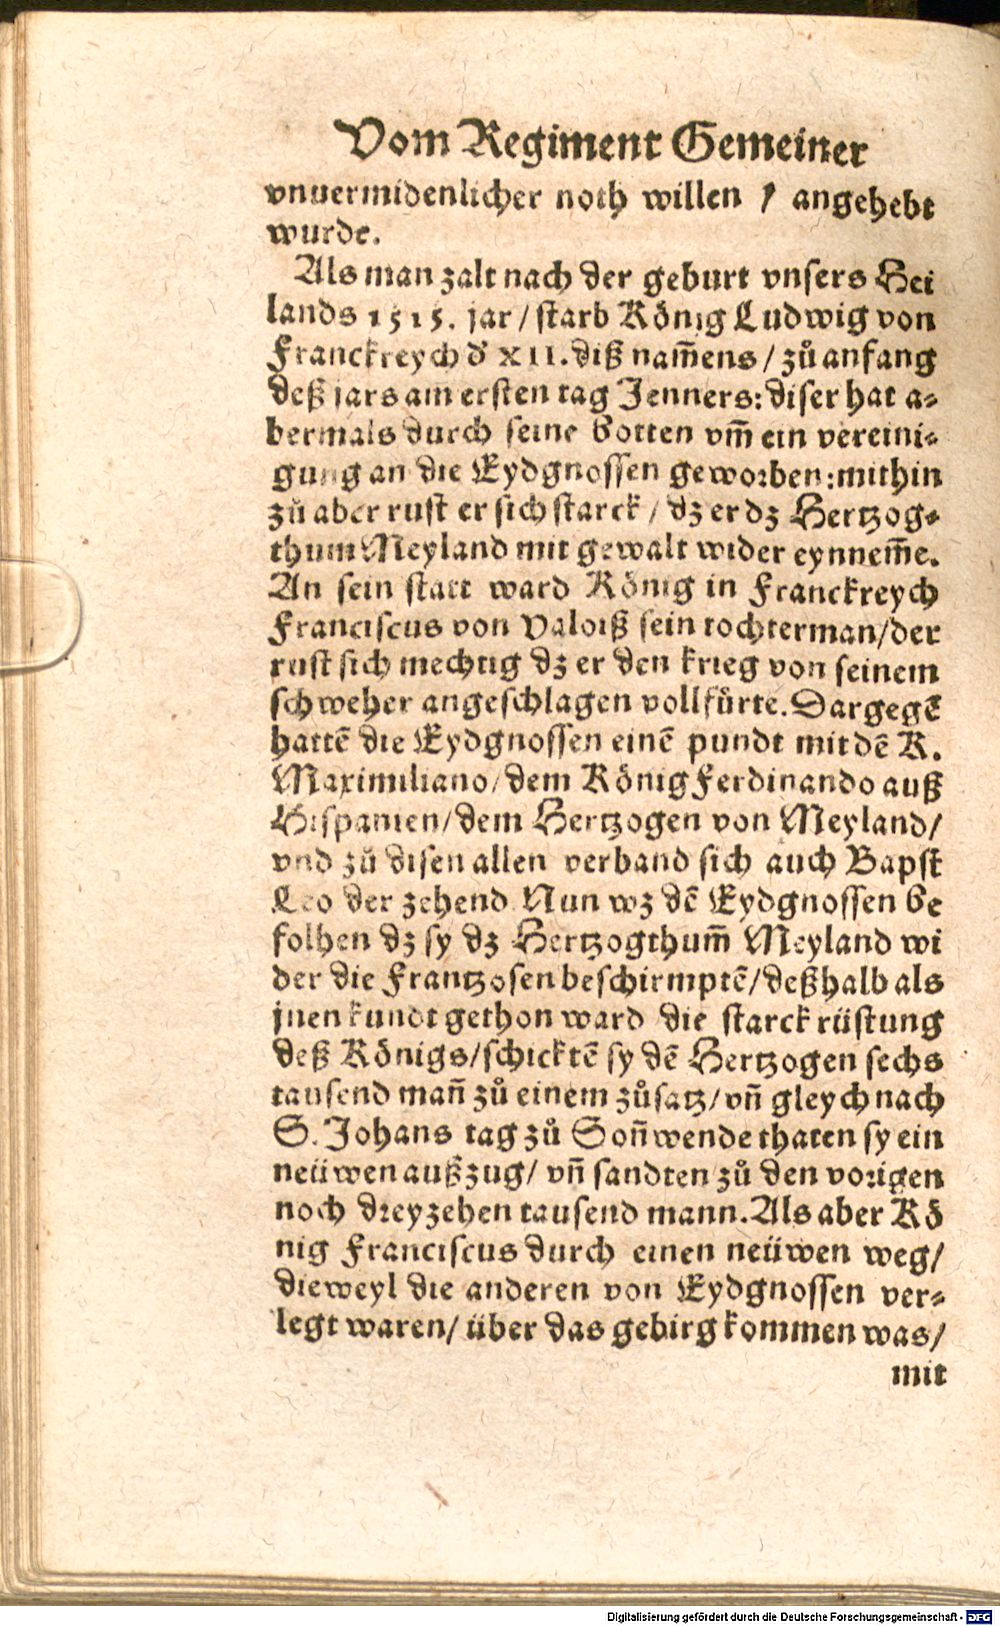 Vom Regiment Gemeiner
vnuermidenlicher noth willen / angehebt
wurde.
Als man zalt nach der geburt vnsers Hei
lands 1515. jar / starb König Ludwig von
Franckreych d' XII. diß nam̃ens / zů anfang
deß jars am ersten tag Jenners: diser hat a-
bermals durch seine botten vm̃ ein vereini-
gung an die Eydgnossen geworben: mithin
zů aber rust er sich starck / dz er dz Hertzog-
thum Meyland mit gewalt wider eynnem̃e.
An sein statt ward König in Franckreych
Franciscus von Valoiß sein tochterman / der
rust sich mechtig dz er den krieg von seinem
schweher angeschlagen vollfürte. Dargegẽ
hattẽ die Eydgnossen einẽ pundt mit dẽ K.
Maximiliano / dem König Ferdinando auß
Hispanien / dem Hertzogen von Meyland /
vnd zů disen allen verband sich auch Bapst
Leo der zehend. Nun wz dẽ Eydgnossen be
folhen dz sy dz Hertzogthum̃ Meyland wi
der die Frantzosen beschirmptẽ / deßhalb als
jnen kundt gethon ward die starck rüstung
deß Königs / schicktẽ sy dẽ Hertzogen sechs
tausend mañ zů einem zůsatz / vñ gleych nach
S. Johans tag zů Soñwende thaten sy ein
neüwen außzug / vñ sandten zů den vorigen
noch dreyzehen tausend mann. Als aber Kö
nig Franciscus durch einen neüwen weg /
dieweyl die anderen von Eydgnossen ver-
legt waren / über das gebirg kommen was /
mit
Digitalisierung gefördert durch die Deutsche Forschungsgemeinschaft - DFG